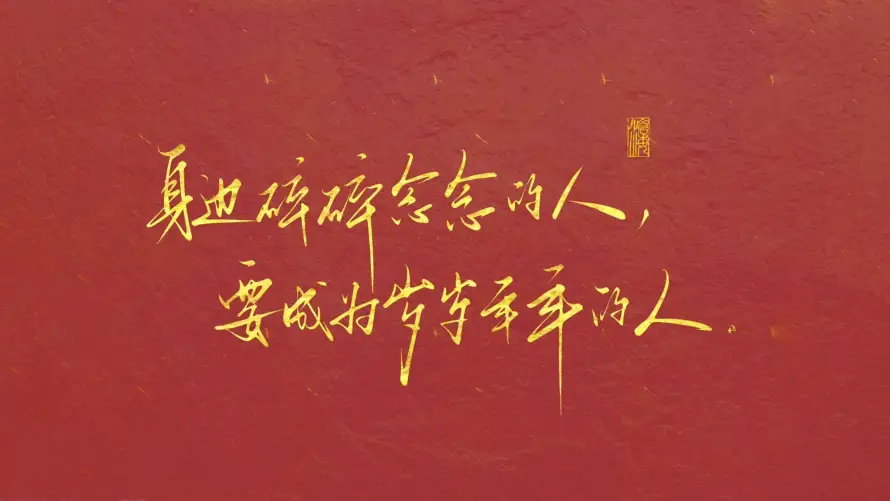 身边碎碎念念的人，
要成为岁岁年年的人。